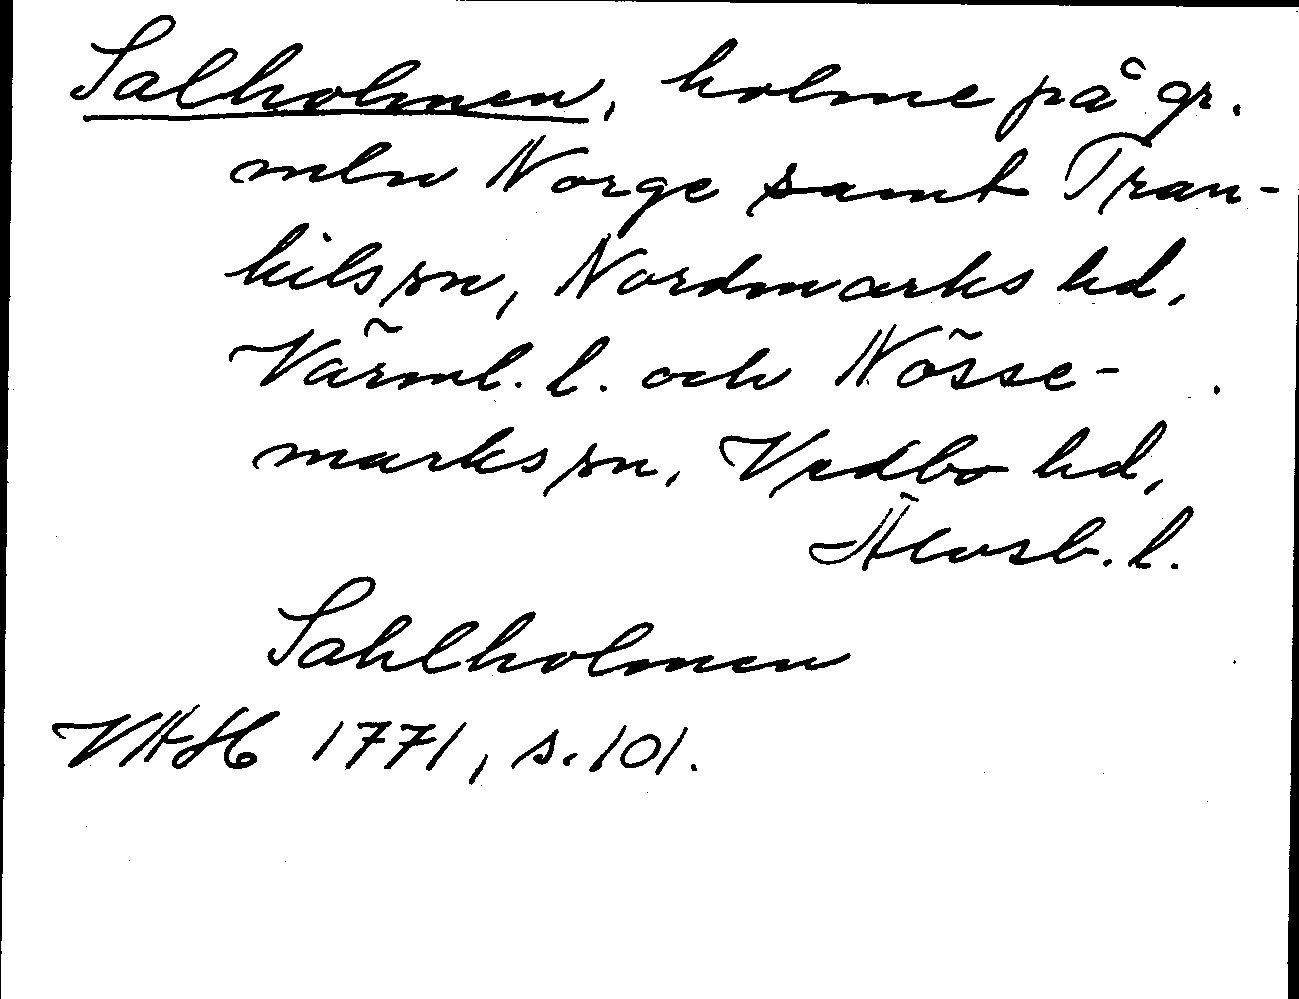 Salholmen, holme på gr.
mln Norge samt Tran-
kils sn, Nordmarks hd,
Värml. l. och Nösse-
marks sn, Vedbo hd,
Älvsb. l.
Sahlholmen
VAH 1771, s. 101.